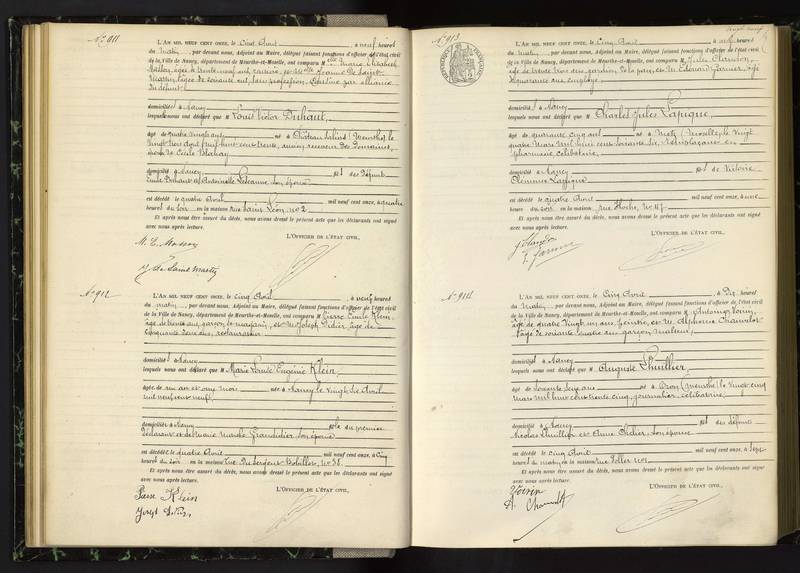 No 911
L'AN MIL NEUF CENT ONZE, le Cinq Avril, à neuf heures
du Matin, par devant nous, Adjoint au Maire, délégué faisant fonctions d'officier de l'état civil
de la Ville de Nancy, département de Meurthe-et-Moselle, ont comparu Melle Marie Elisabeth
âgée de trente neuf ans, et Melle Jeanne De Saint
Martin, âgée de soixante ans, sans profession, Cousine par alliance
du défunt
domiciliés à Nancy
lesquelles nous ont déclaré que M Louis Victor Duhaut,
âgé de quatre vingts ans né à Château Salins (Meurthe) le
vingt trois Août mil huit cent trente, ancien receveur des Domaines,
de Cécile
domicilié à Nancy fils des défunts
Emile Duhaut et Antoinette son épouse
est décédé le quatre Avril mil neuf cent onze, à quatre
heures du soir en la maison rue Saint Léon no 2
Et après nous être assuré du décès, nous avons dressé le présent acte que les déclarants ont signé
avec nous après lecture.
L'OFFICIER DE L'ÉTAT CIVIL,
J. de Saint Martin
No 912
L'AN MIL NEUF CENT ONZE, le Cinq Avril, à neuf heures
du matin, par devant nous, Adjoint au Maire, délégué faisant fonctions d'officier de l'état civil
de la Ville de Nancy, département de Meurthe-et-Moselle, ont comparu M Pierre Emile Klein,
âgé de trente ans, garçon de magasin, et M Joseph Didier, âgé de
cinquante deux ans, restaurateur
domiciliés à Nancy
lesquels nous ont déclaré que M Marie Louise Eugénie Klein,
âgée de un an et onze mois née à Nancy le vingt six Avril
mil neuf cent neuf
domiciliée à Nancy fille du premier
déclarant et de Marie Grandidier son épouse
est décédée le quatre Avril mil neuf cent onze, à cinq
heures du soir en la maison rue du Sergent Bobillot, No 38.
Et après nous être assuré du décès, nous avons dressé le présent acte que les déclarants ont signé
avec nous après lecture.
L'OFFICIER DE L'ÉTAT CIVIL,
Pierre Klein
No 913
L'AN MIL NEUF CENT ONZE, le Cinq Avril, à neuf heures
du Matin, par devant nous, Adjoint au Maire, délégué faisant fonctions d'officier de l'état civil
de la Ville de Nancy, département de Meurthe-et-Moselle, ont comparu M Jules
âgé de trente trois ans, gardien de la paix, et M Edouard Garnier, âgé
quarante ans employé
domiciliés à Nancy
lesquels nous ont déclaré que M Charles Jules Lapique
âgé de quarante cinq ans né à Metz (Moselle) le vingt
quatre Mars mil huit cent soixante six, en
pharmacie célibataire,
domicilié à Nancy fils de Victoire
Clémence Lapique
est décédé le quatre Avril mil neuf cent onze, à onze
heures du soir en la maison rue Hoche, No 47
Et après nous être assuré du décès, nous avons dressé le présent acte que les déclarants ont signé
avec nous après lecture.
L'OFFICIER DE L'ÉTAT CIVIL,
E. Garnier
No 914
L'AN MIL NEUF CENT ONZE, le Cinq Avril, à Dix heures
du Matin, par devant nous, Adjoint au Maire, délégué faisant fonctions d'officier de l'état civil
de la Ville de Nancy, département de Meurthe-et-Moselle, ont comparu M Antoine Voirin,
âgé de quatre vingt un ans, et M Alphonse
âgé de soixante quatre ans garçon
domiciliés à Nancy
lesquels nous ont déclaré que M Auguste Lhuillier,
âgé de soixante seize ans né à (Meurthe) le vingt cinq
Mars mil huit cent trente cinq, journalier, célibataire
domicilié à Nancy fils des défunts
Nicolas Lhuillier et Anne son épouse
est décédé le cinq Avril mil neuf cent onze, à sept
heures du matin en la maison rue
Et après nous être assuré du décès, nous avons dressé le présent acte que les déclarants ont signé
avec nous après lecture.
L'OFFICIER DE L'ÉTAT CIVIL,
Voirin